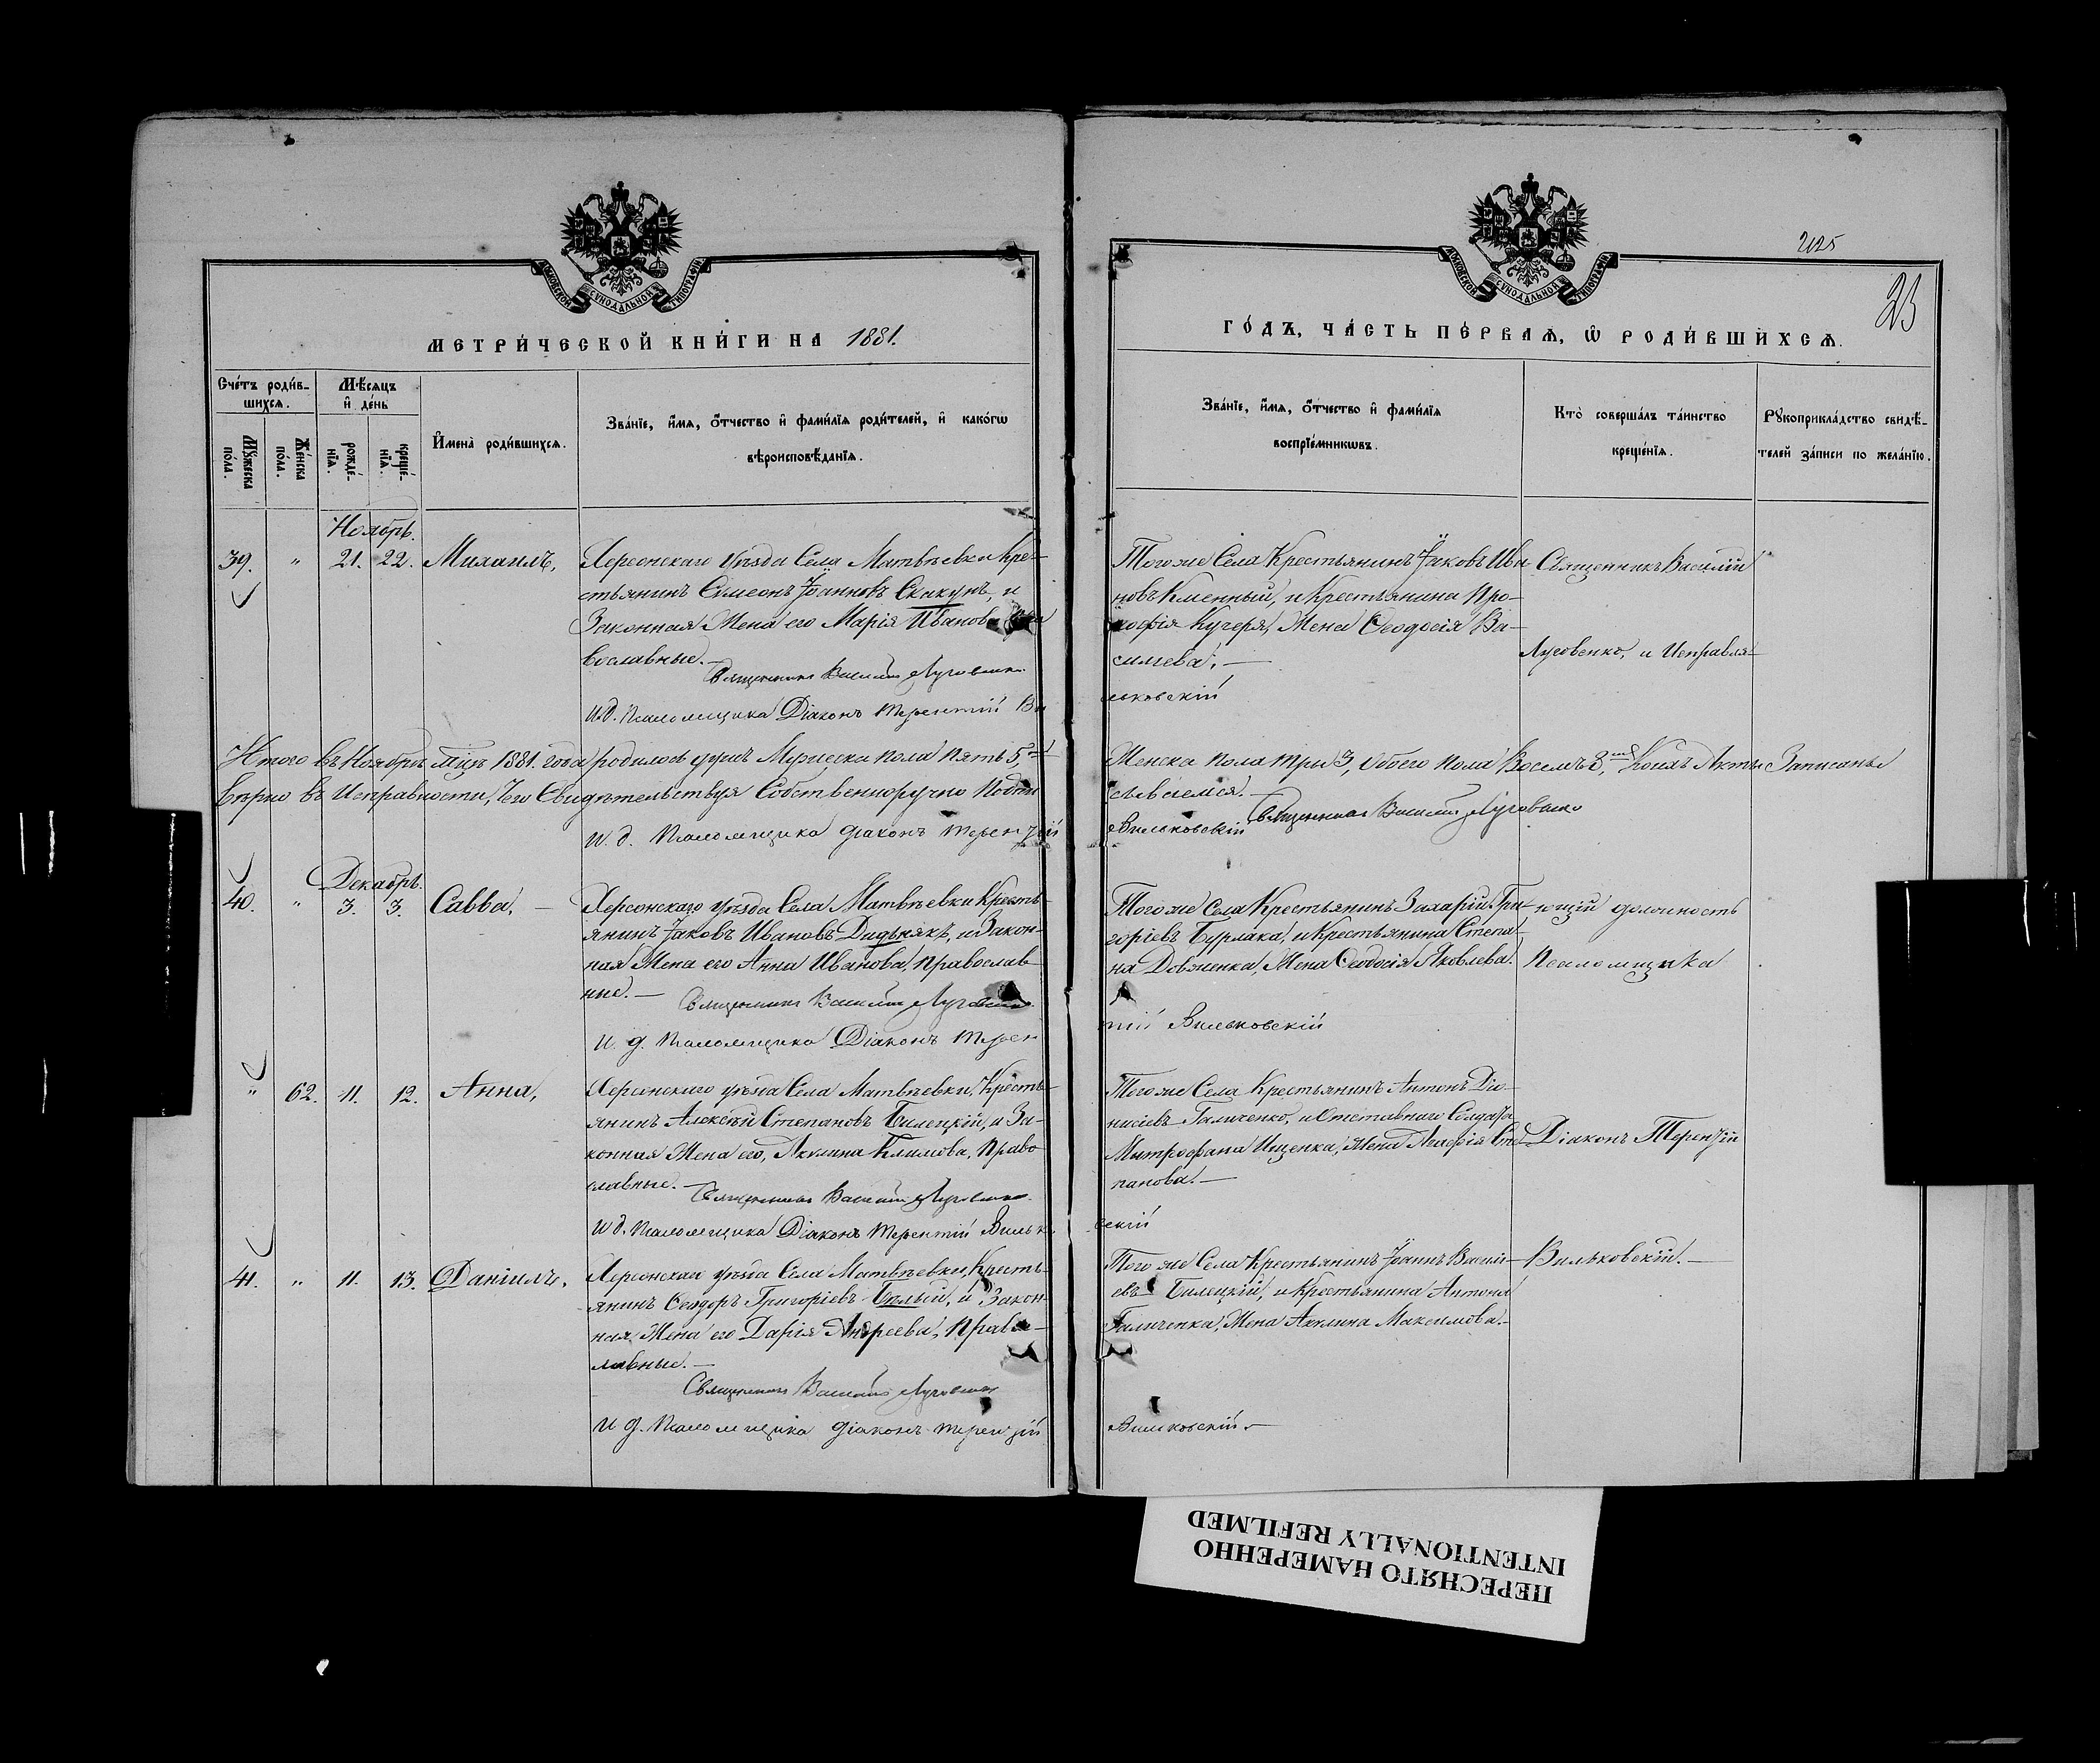 МОСКОВСКОЙ СѴНОДАЛЬНОЙ ТИПОГРАФІИ
МЕТРИ́ЧЕСКОЙ КНИ́ГИ НА 1881.
Сче́тъ роди́в-
шихсѧ.
Мѣ́сѧцъ
и҆ де́нь
Мꙋ́жеска
по́ла.
Же́нска
по́ла.
рожде́-
нїѧ.
креще́-
нїѧ.
И҆мена̀ роди́вшихсѧ.
Зва́нїе, и҆́мѧ, ѻ҆́тчество и҆ фами́лїѧ роди́телей, и҆ како́гѡ
вѣроисповѣ́данїѧ.
Ноябрь.
39. " 21. 22. Михаилъ,
Херсонскаго уѣзда Села Матвѣевки Кре-
стьянинъ Сѵмеонъ Іоанновъ Скикунъ, и
Законная Жена его Марія Иванова, Пра
вославные.—
Священникъ Василій Луговенко
И. д. Псаломщика Діаконъ Терентій Ви
Итого въ Ноябрѣ мцѣ 1881. года родилось душъ Мужеска пола пять 5,
вѣрно въ Исправности, Чего Свидѣтельствуя Собственноручно Подпи
И. д. Псаломщика Діаконъ Терентій
Декабрь.
40. " 3. 3. Савва, —
Херсонскаго уѣзда Села Матвѣевки Кресть-
янинъ Іаковъ Ивановъ Дидынякъ, и Закон-
ная Жена его Анна Иванова, Православ-
ные.—
Священникъ Василій Луговенко
И. д. Псаломщика Діаконъ Терен
" 62. 11. 12. Анна,
Херсонскаго уѣзда Села Матвѣевки, Кресть-
янинъ Алексѣй Степановъ Билецкій, и За-
конная Жена его, Акулина Климова, Право
славные.—
Священникъ Василій Луговенко
И. д. Псаломщика Діаконъ Терентій Вильк
41. " 11. 13. Даніилъ,
Херсонскаго уѣзда Села Матвѣевки, Кресть-
янинъ Ѳеодоръ Григоріевъ Бѣлый, и Закон-
ная Жена его Дарія Андреева, Право-
лавные.—
Священникъ Василій Луговенко
И. д. Псаломщика Діаконъ Терентій
2125
23
МОСКОВСКОЙ СѴНОДАЛЬНОЙ ТИПОГРАФІИ
ГО́ДЪ, ЧА́СТЬ ПЕ́РВАѦ, Ѽ РОДИ́ВШИХСѦ.
Зва́нїе, и҆́мѧ, ѻ҆́тчество и҆ фами́лїѧ
воспрїе́мникѡвъ.
Кто̀ соверша́лъ та́инство
креще́нїѧ.
Рꙋкоприкла́дство свидѣ́-
телей за́писи по жела́нїю.
Того же Села Крестьянинъ Іаковъ Ива-
новъ Кменный, и Крестьянина Про-
кофія Кучеря, Жена Ѳеодосія Ва-
силіева.—
Священникъ Василій
Луговенко, и Исправля-
льковскій
Женска пола три 3, обоего пола Восемъ 8, Коихъ Акты Записаны
сываемся.—
Священникъ Василій Луговенко
Вильковскій
Того же Села Крестьянинъ Захарій Гри-
горіевъ Бурлака, и Крестьянина Степа-
на Довженка, Жена Ѳеодосія Яковлева.
ющій должность
Псаломщика
тій Вильковскій
Того же Села Крестьянинъ Антонъ Діо-
нисіевъ Галиченко, и Отставнаго Солдата
Митрофана Ищенка, Жена Агафія Сте-
панова.—
Діаконъ Терентій
вскій
Того же Села Крестьянинъ Іоаннъ Василі-
евъ Билецкій, и Крестьянина Антона
Галиченка, Жена Акулина Максимова.—
Вильковскій.—
Вильковскій.—
ПЕРЕСНЯТО НАМЕРЕННО
INTENTIONALLY REFILMED